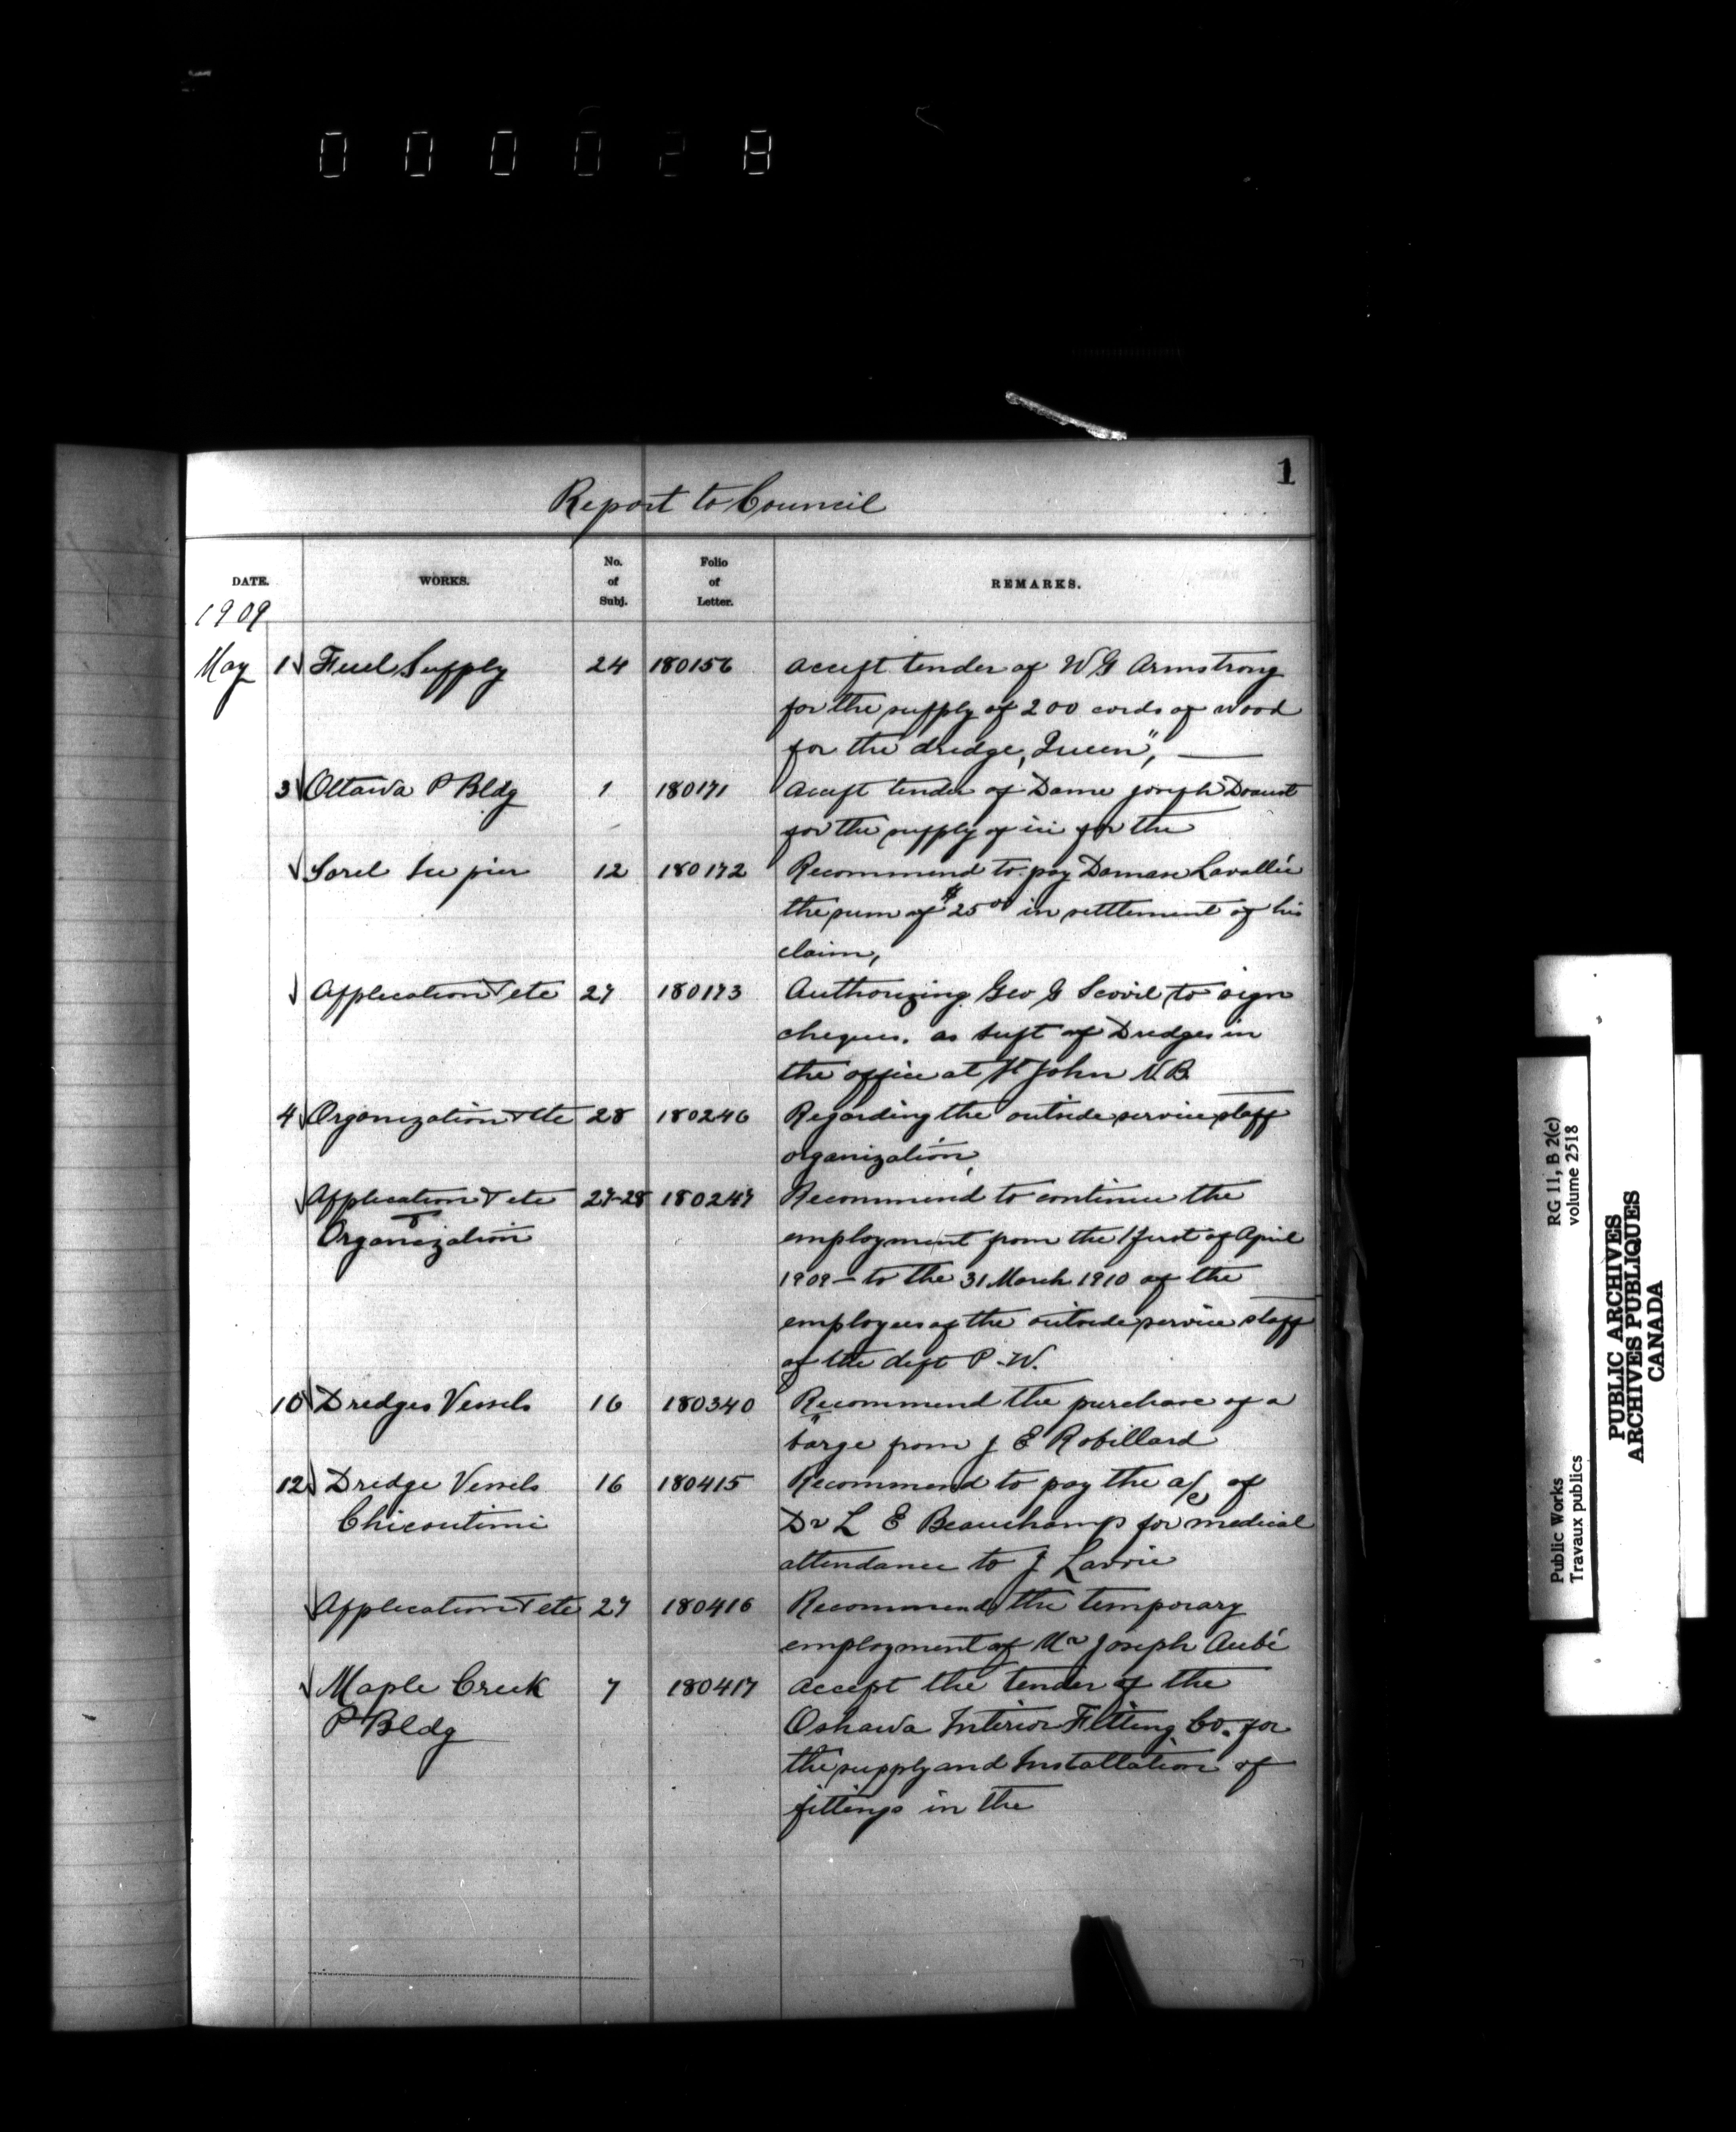 000028
1
Report to Council
DATE. WORKS. No. of Subj. Folio of Letter. REMARKS.
1909
May 1 Fuel Supply 24 180156 accept tender of W G Armstrong
for the supply of 200 cords of wood
for the dredge "Queen",
3 Ottawa P Bldg 1 180171 Accept tender of Dame Joseph Daoust
for the supply of ice for the
Sorel Ice pier 12 180172 Recommend to pay Damase Lavallée
the sum of $25 00 in settlement of his
claim,
Application & etc 27 180173 Authorizing Geo G Scovil to sign
cheques. as Supt of Dredges in
the office at St John N.B.
4 Organization & etc 28 180246 Regarding the outside service staff
organization,
Application & etc 27-28 180247 Recommend to continue the
&
Organization employment from the 1 first of April
1909 – to the 31 March 1910 of the
employees of the outside service staff
of the dept P. W.
10 Dredges Vessels 16 180340 Recommend the purchase of a
barge from J E Robillard
12 Dredge Vessels 16 180415 Recommend to pay the a/c of
Chicoutimi Dr L E Beauchamp for medical
attendance to J Lavoie
Application & etc 27 180416 Recommend the temporary
employment of Mr Joseph Aubé
Maple Creek 7 180417 accept the tender of the
P Bldg Oshawa Interior Fitting Co. for
the supply and Installation of
fittings in the
RG 11, B 2(c)
volume 2518
Public Works
Travaux publics
PUBLIC ARCHIVES
ARCHIVES PUBLIQUES
CANADA